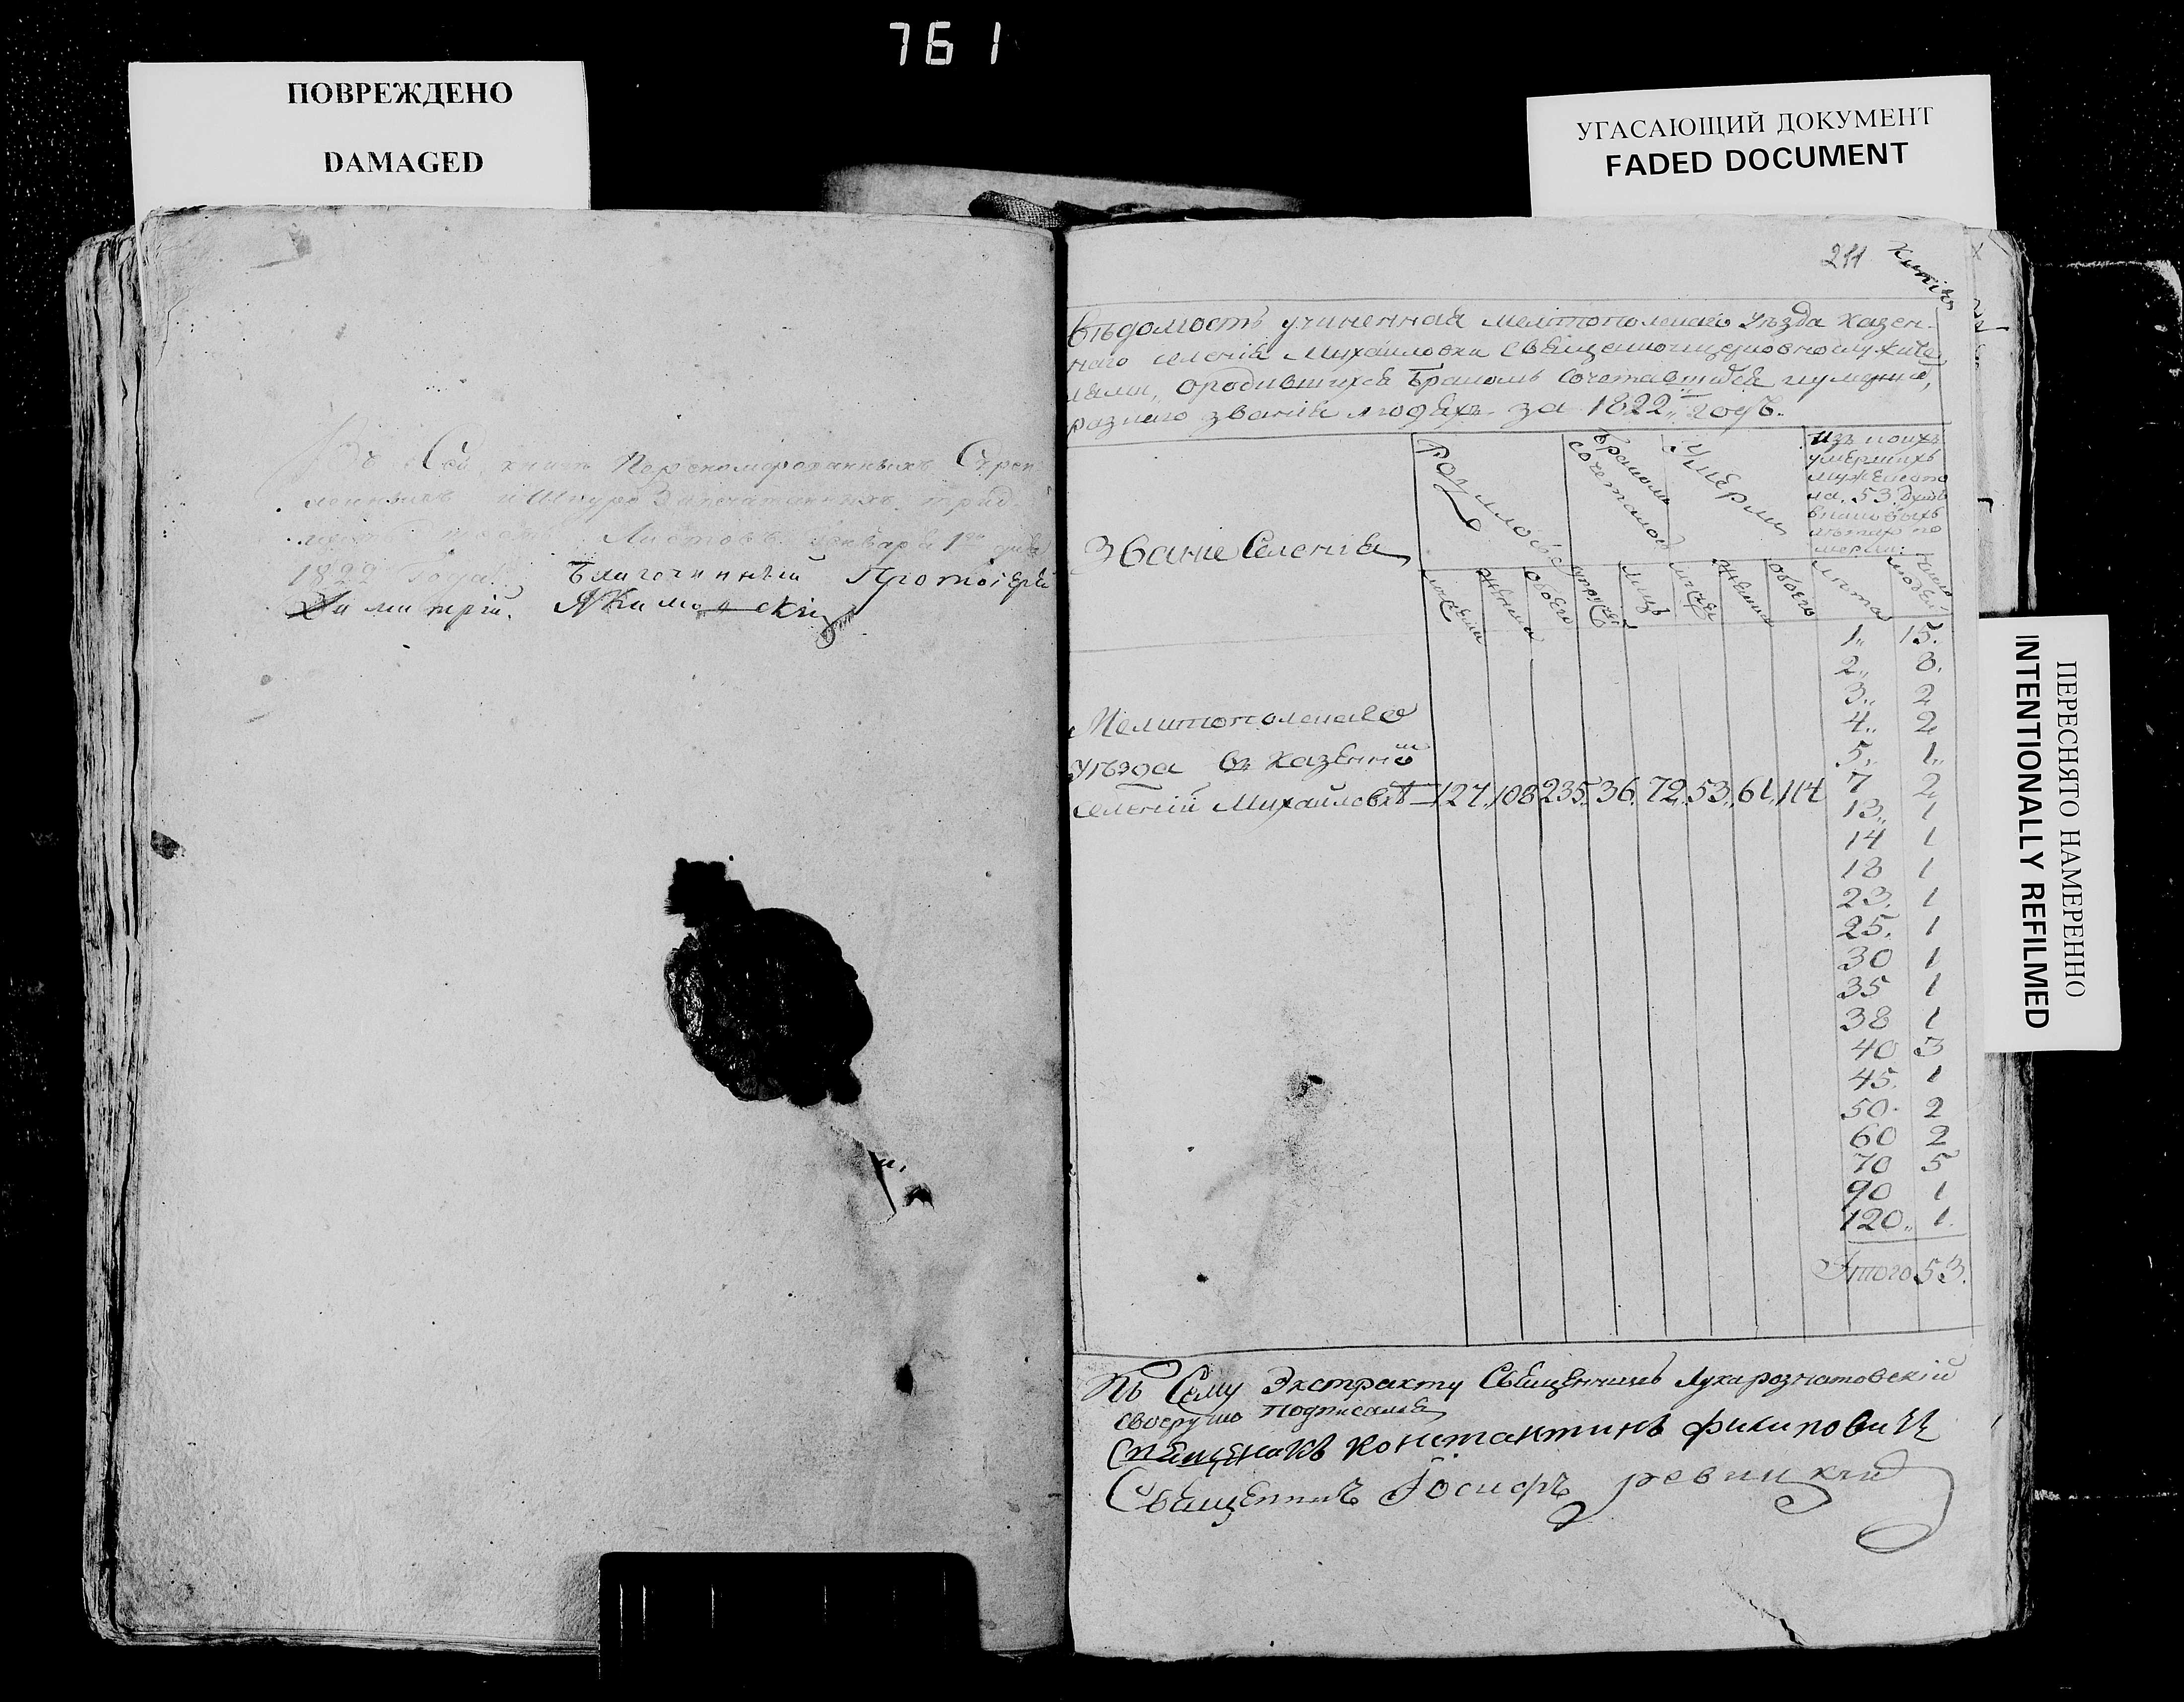 761
ПОВРЕЖДЕНО
DAMAGED
УГАСАЮЩИЙ ДОКУМЕНТ
FADED DOCUMENT
ПЕРЕСНЯТО НАМЕРЕННО
INTENTIONALLY REFILMED
Сей книге Перономерованныхъ Скреп
ленныхъ и Шнуро Запечатанныхъ трид
Листовъ Генваря 1го дня
1822 Года. Благочинный Протоіерей
Димитрій
211
Вѣдомость учиненная мелитополскаго уѣзда казен-
наго селенія Михаиловки священноцерковнослужите
лями, ородившихся бракомъ сочетавшихся иумерши
разнаго званія людяхъ за 1822 годъ.
Звание Селенія
Родилось
бракомъ
сочеталось
Умерли
изъ коихъ
умершихъ
мужескопо
ла 53 душъ
вкаковыхъ
лѣтахъ по
мерли:
мужеска
женска
обоего
лицъ
женска
обоего
лѣта
число
людей
Мелитополскаго
уѣзда въ казенномъ
селеніи Михайловкѣ 127 108 235 36 72 53 61 114
1 15
2 8
3 2
4 2
5 1
7 2
13 1
14 1
18 1
23 1
25 1
30 1
35 1
38 1
40 3
45 1
50 2
60 2
70 5
90 1
120 1
Итого 53
Къ Сему Экстракту Священникъ Лука розчатовскій
своеручно подписался
Священикъ Константинъ филиповичъ
Священникъ Іосифъ ревицкій